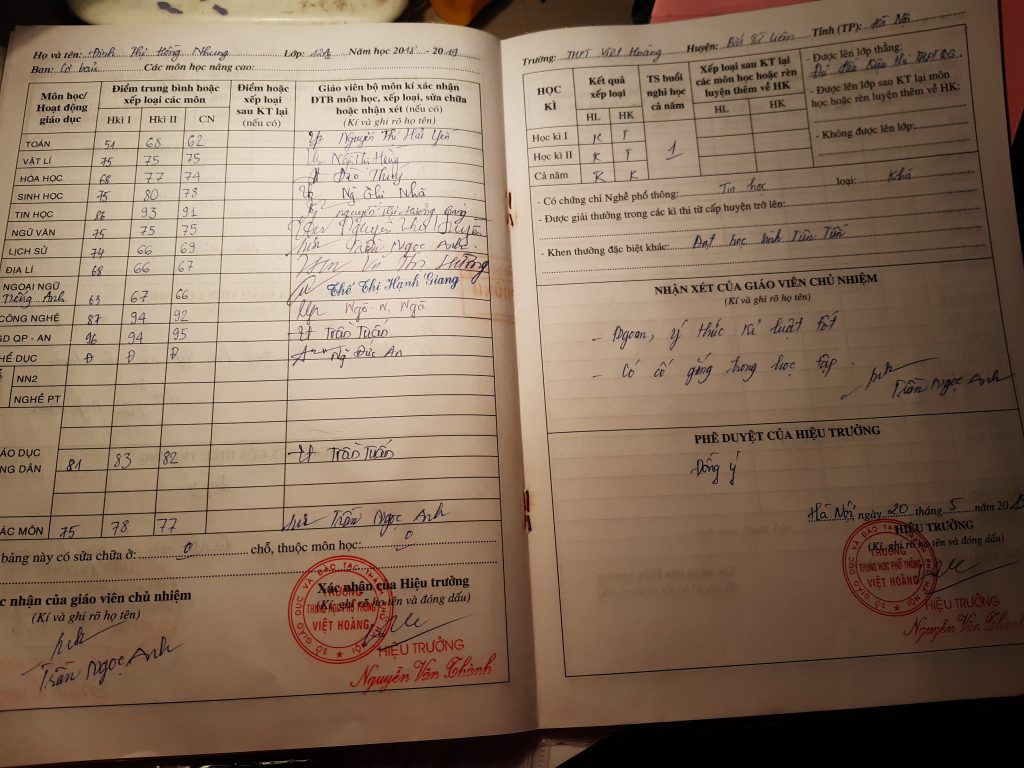 Họ và tên: Đinh Thị Hồng Nhung Lớp: 12A Năm học 2018 - 2019
Ban: Cơ bản Các môn học nâng cao:
Môn học/ Hoạt động giáo dục Điểm trung bình hoặc xếp loại các môn Điểm hoặc xếp loại sau KT lại (nếu có) Giáo viên bộ môn kí xác nhận ĐTB môn học, xếp loại, sửa chữa hoặc nhận xét (nếu có) (Kí và ghi rõ họ tên)
HKì I HKì II CN
TOÁN 51 68 62 Nguyễn Thị Hải Yến
VẬT LÍ 75 75 75
HÓA HỌC 68 77 74 Đào Thuý
SINH HỌC 75 80 78
TIN HỌC 86 93 91
NGỮ VĂN 75 75 75
LỊCH SỬ 74 66 69 Trần Ngọc Anh
ĐỊA LÍ 68 66 67
NGOẠI NGỮ
Tiếng Anh 63 67 66 Thế Thị Hạnh Giang
CÔNG NGHỆ 87 94 92 Ngô. N. Ngà
GD QP - AN 96 94 95 Trần Tuấn
HỂ DỤC Đ Đ Đ Ng Đức An
NN2
NGHỀ PT
ÁO DỤC
NG DÂN 81 83 82 Trần Tuấn
ÁC MÔN 75 78 77 Trần Ngọc Anh
bảng này có sửa chữa ở: 0 chỗ, thuộc môn học: 0
c nhận của giáo viên chủ nhiệm
(Kí và ghi rõ họ tên)
Trần Ngọc Anh
Xác nhận của Hiệu trưởng
(Kí, ghi rõ họ tên và đóng dấu)
SỞ GIÁO DỤC VÀ ĐÀO TẠO THÀNH PHỐ HÀ NỘI
TRƯỜNG
TRUNG HỌC PHỔ THÔNG
VIỆT HOÀNG
HIỆU TRƯỞNG
Nguyễn Văn Thành
Trường: THPT Việt Hoàng Huyện: Bắc Từ Liêm Tỉnh (TP): Hà Nội
HỌC KÌ Kết quả xếp loại TS buổi nghỉ học cả năm Xếp loại sau KT lại các môn học hoặc rèn luyện thêm về HK
HL HK HL HK
Học kì I K T
Học kì II K T 1
Cả năm K K
- Được lên lớp thẳng:
Đủ điều kiện thi THPTQG
- Được lên lớp sau KT lại môn
học hoặc rèn luyện thêm về HK:
- Không được lên lớp:
- Có chứng chỉ Nghề phổ thông: Tin học loại: Khá
- Được giải thưởng trong các kì thi từ cấp huyện trở lên:
- Khen thưởng đặc biệt khác: Đạt học sinh Tiên Tiến
NHẬN XÉT CỦA GIÁO VIÊN CHỦ NHIỆM
(Kí và ghi rõ họ tên)
- Ngoan, ý thức kỉ luật tốt
- Có cố gắng trong học tập.
Trần Ngọc Anh
PHÊ DUYỆT CỦA HIỆU TRƯỞNG
Đồng ý
Hà Nội, ngày 20 tháng 5 năm 20
HIỆU TRƯỞNG
(Kí, ghi rõ họ tên và đóng dấu)
SỞ GIÁO DỤC VÀ ĐÀO TẠO THÀNH PHỐ HÀ NỘI
TRƯỜNG
TRUNG HỌC PHỔ THÔNG
VIỆT HOÀNG
HIỆU TRƯỞNG
Nguyễn Văn Thành